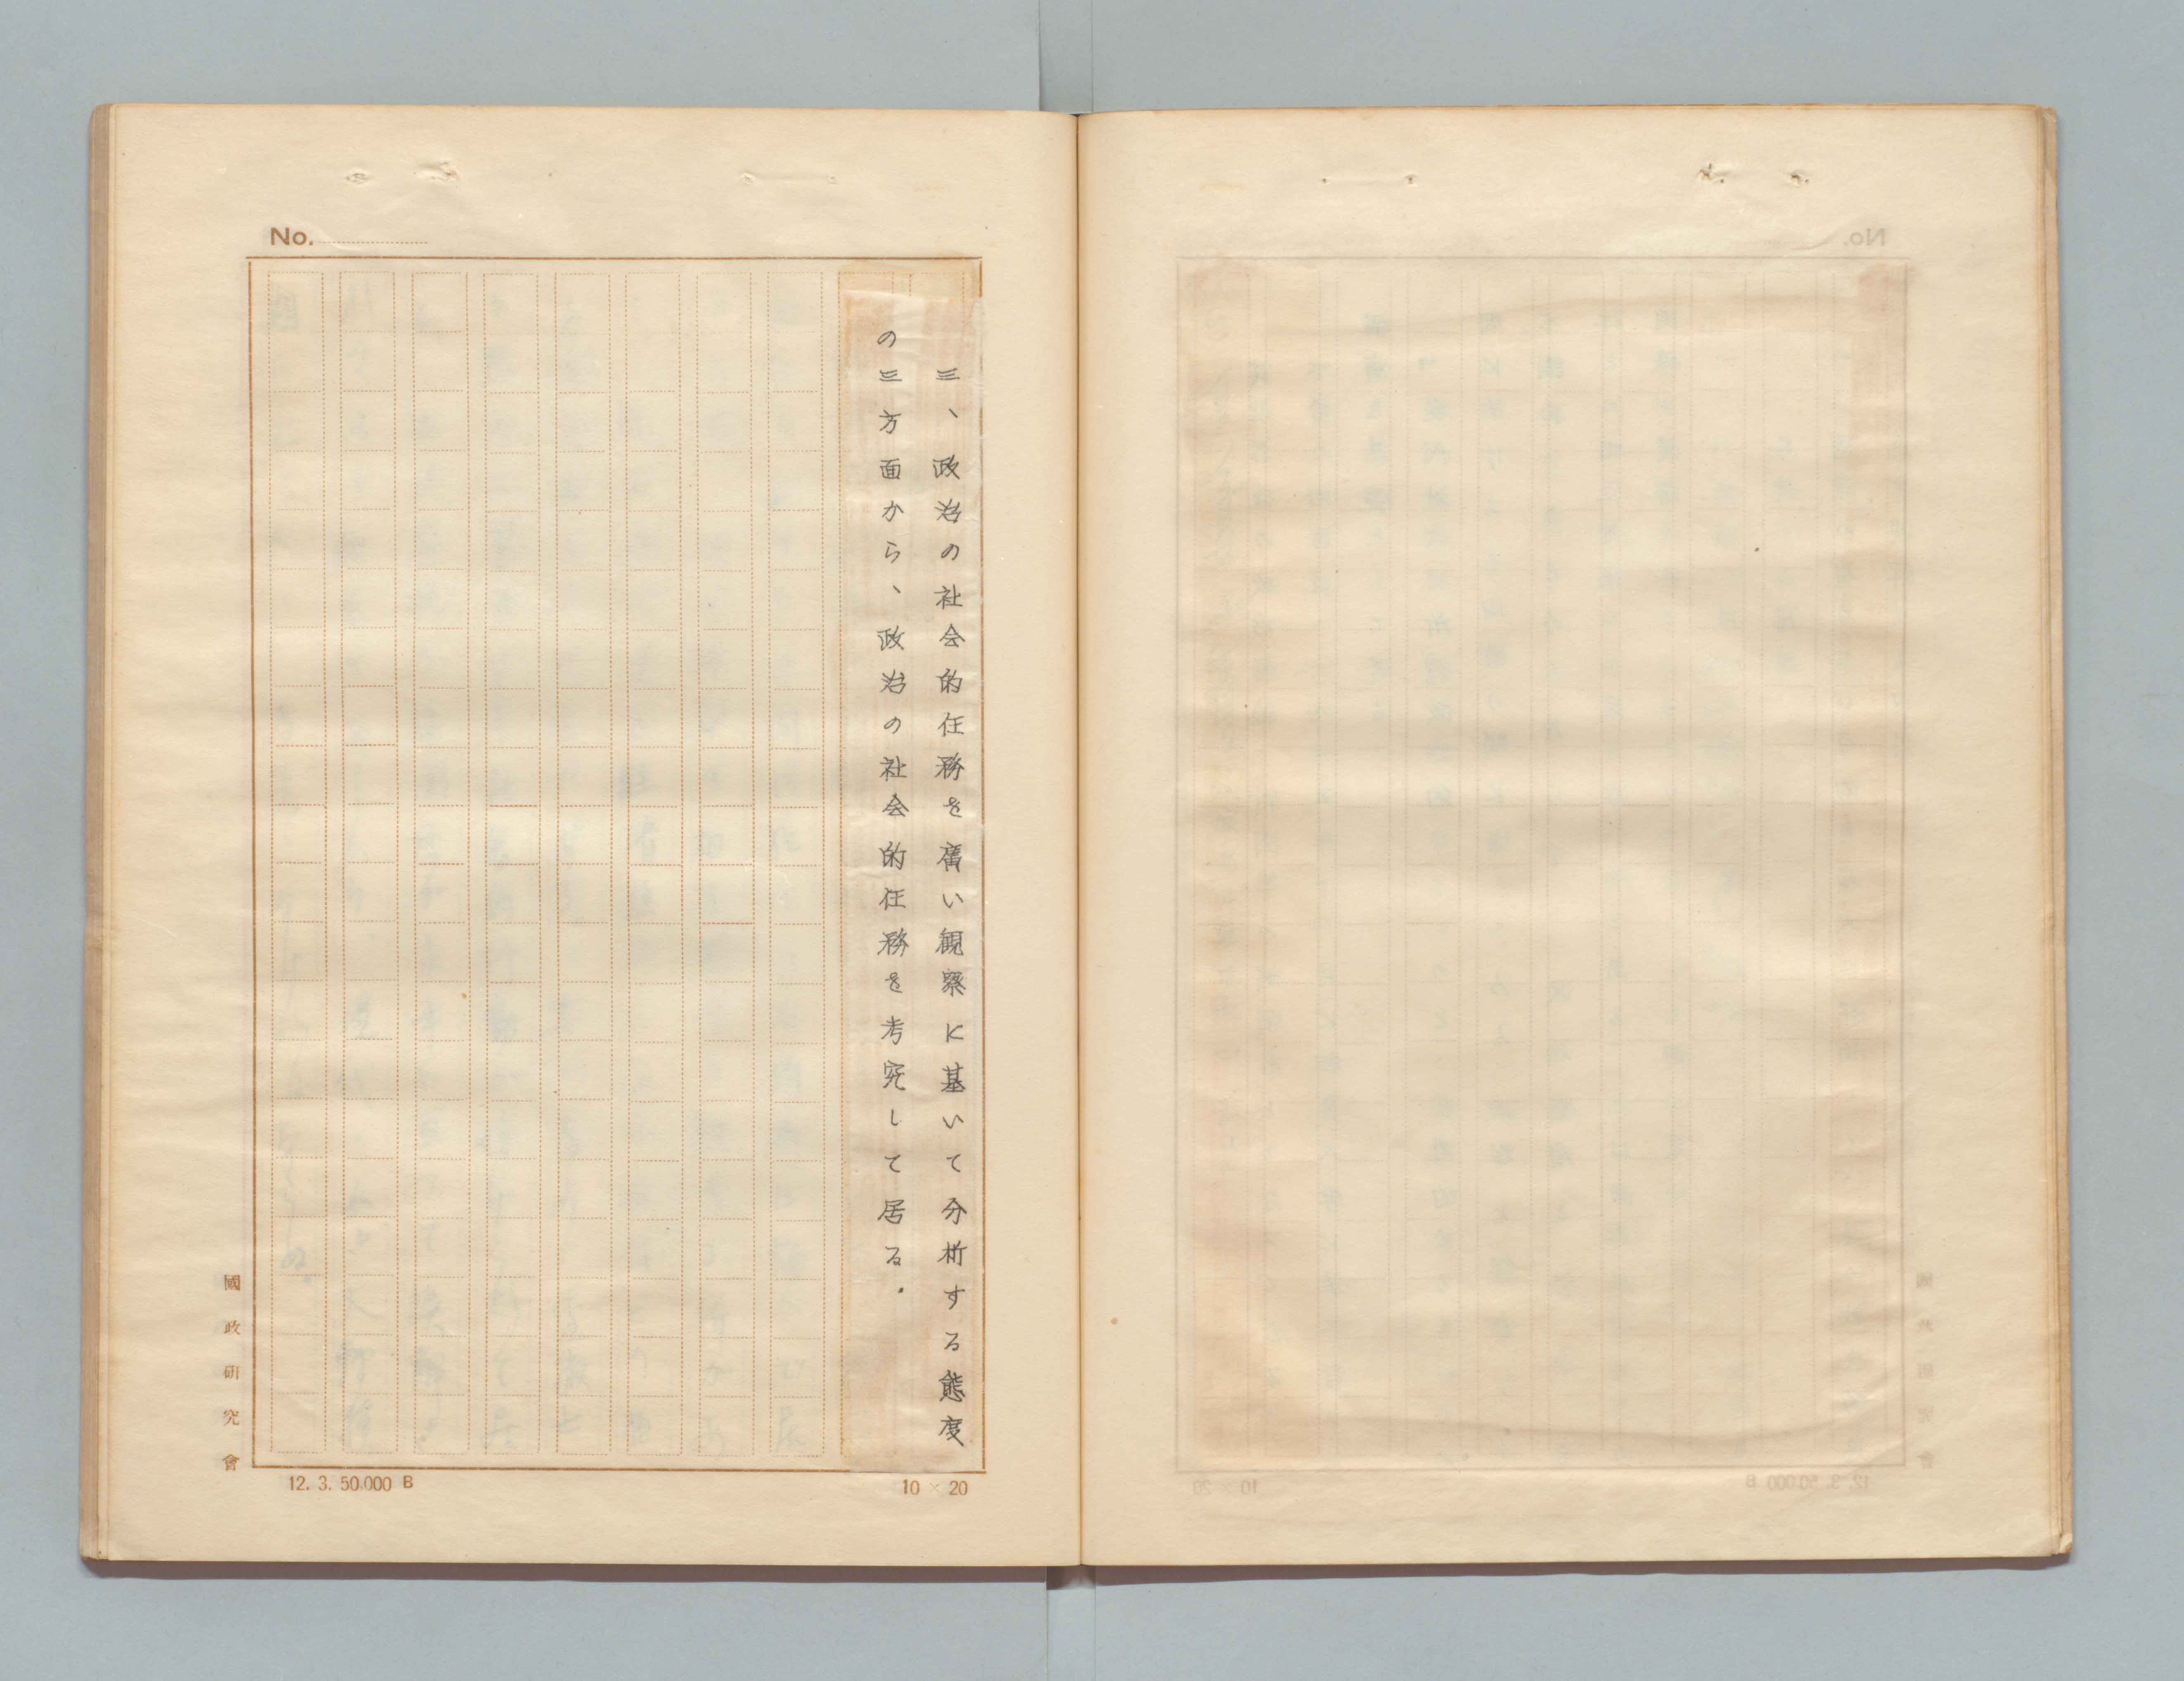 No.
三、政治の社会的任務を廣い観察に基いて分析する態度
の三方面から、政治の社会的任務を考究して居る.
國政研究會
12. 3. 50,000 B
10 × 20